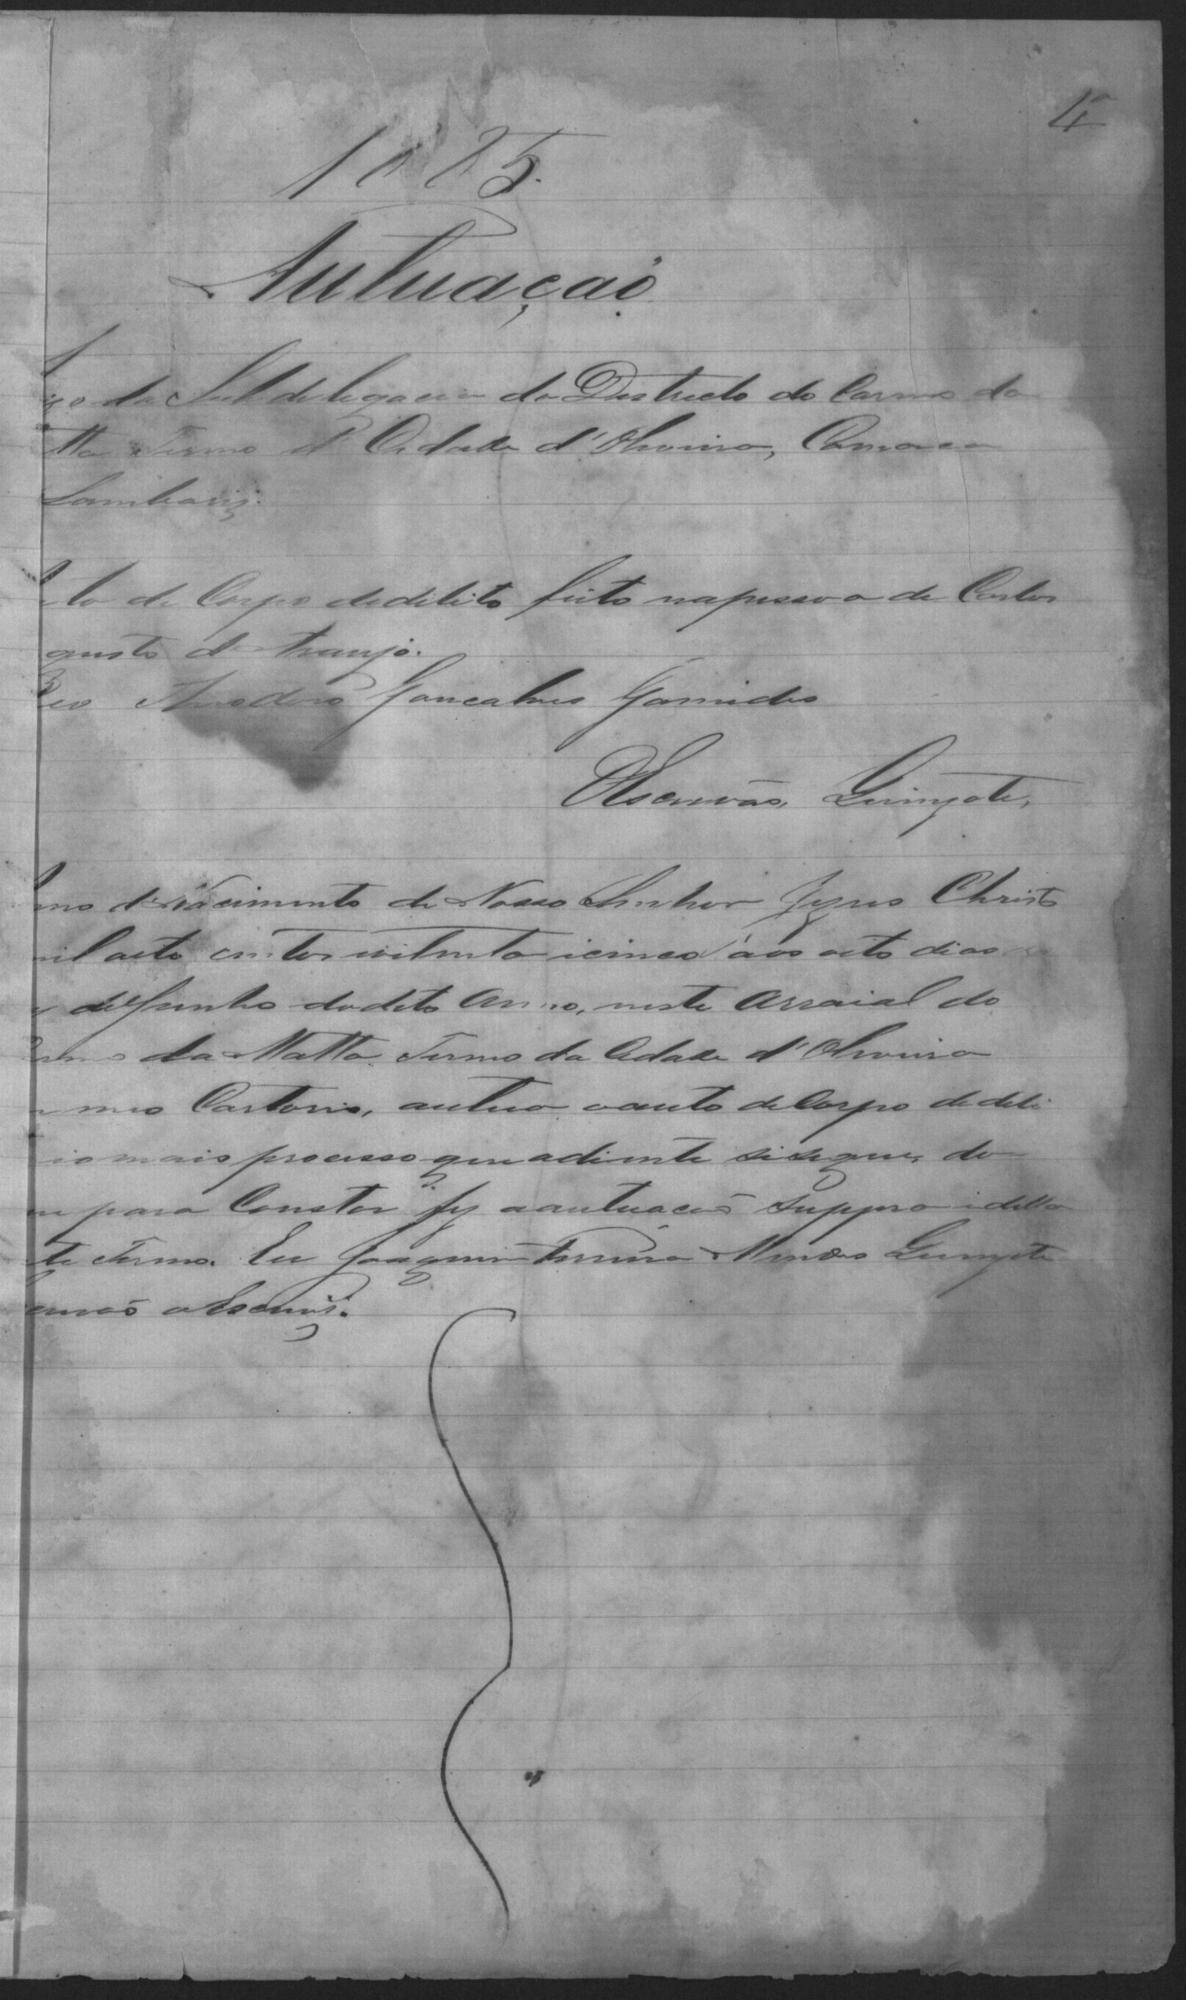 4
1885.
Autuação
da Subdelegacia do Districto do Carmo da
tta Termo d' Cidade d'Oliveira, Comarca
to de Corpo dedilito feito napessoa de Carlos
gusto d Araujo.
Reo Theodoro Gonçalves
OEscrivão,
nno d'Nacimento de Nosso Senhor Jesus Christo
mil oito centos ioitenta icinco aos oito dias
deJunho dodito Anno, neste Arraial do
da Matta Termo da Cidade d'Oliveira
meo Cartorio, autuo oauto de Corpo de deli
iomais processo queadiante sisegue, do
para Constar fiz aautuação suppra
te Termo. Eu Joaquim Ferreira Mendes
crivão oEscrevi.